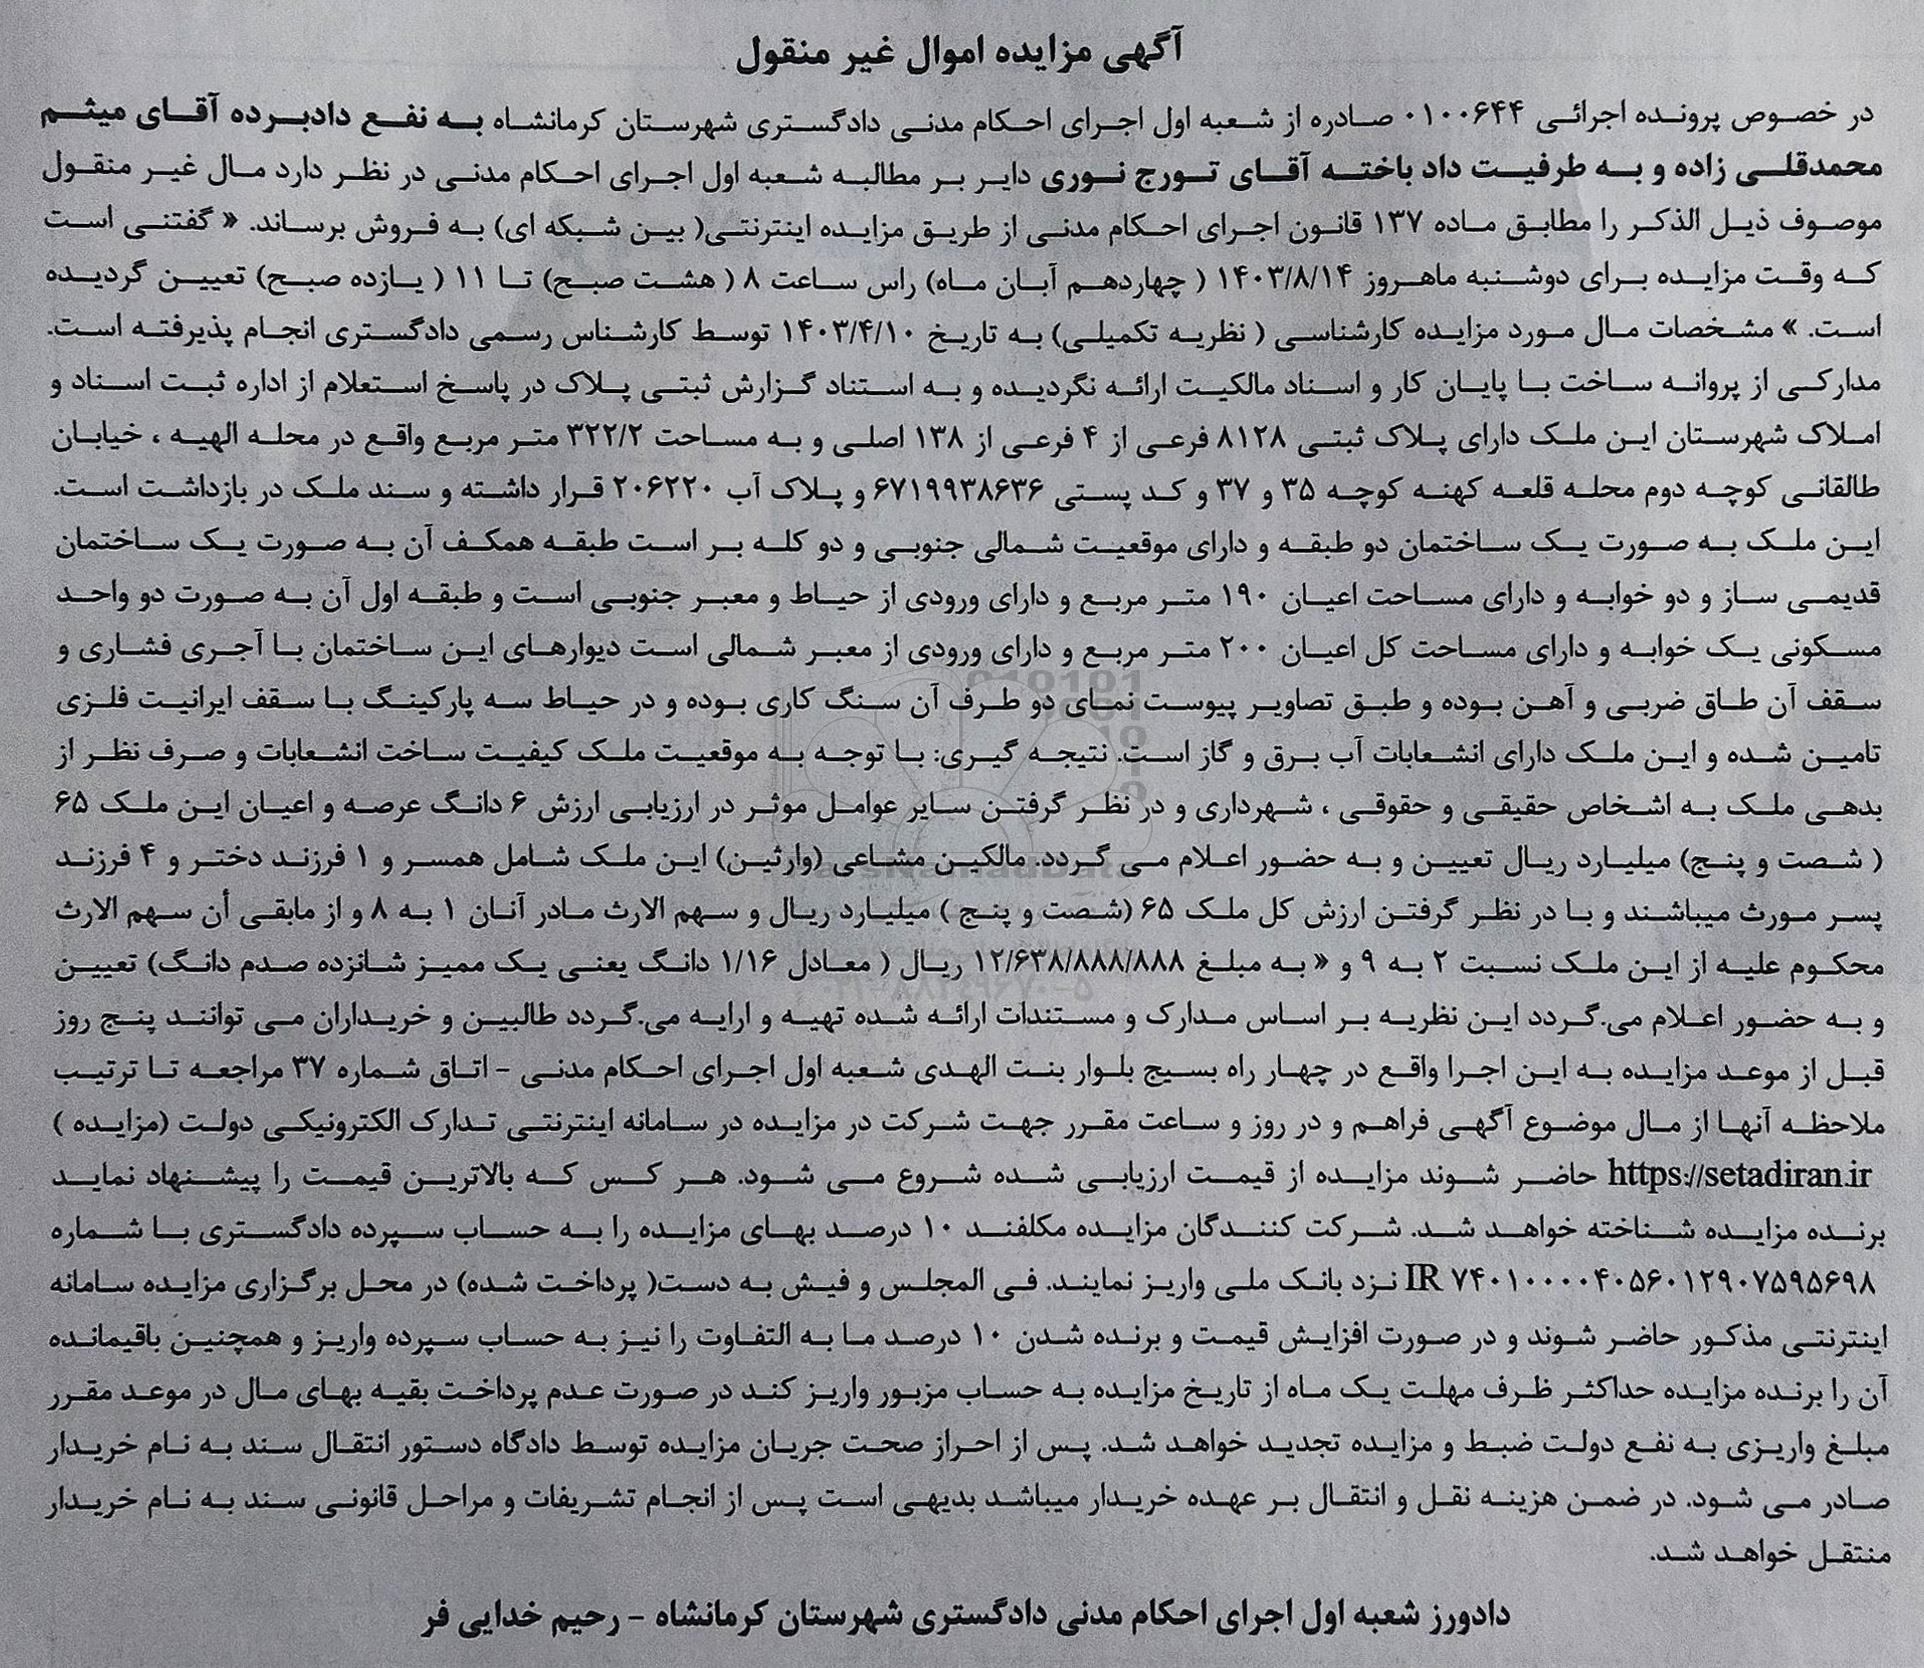 آگهی مزایده اموال غیر منقول
در خصوص پرونده اجرائی ۰۱۰۰۶۴۴ صادره از شعبه اول اجرای احکام مدنی دادگستری شهرستان کرمانشاه به نفع دادبرده آقای میثم
محمدقلی زاده و به طرفیت داد باخته آقای تورج نوری دایر بر مطالبه شعبه اول اجرای احکام مدنی در نظر دارد مال غیر منقول
موصوف ذیل الذکر را مطابق ماده ۱۳۷ قانون اجرای احکام مدنی از طریق مزایده اینترنتی( بین شبکه ای) به فروش برساند. « گفتنی است
که وقت مزایده برای دوشنبه ماهروز ۱۴۰۳/۸/۱۴ ( چهاردهم آبان ماه) راس ساعت ۸ ( هشت صبح) تا ۱۱ ( یازده صبح) تعیین گردیده
است. » مشخصات مال مورد مزایده کارشناسی ( نظریه تکمیلی) به تاریخ ۱۴۰۳/۴/۱۰ توسط کارشناس رسمی دادگستری انجام پذیرفته است.
مدارکی از پروانه ساخت با پایان کار و اسناد مالکیت ارائه نگردیده و به استناد گزارش ثبتی پلاک در پاسخ استعلام از اداره ثبت اسناد و
املاک شهرستان این ملک دارای پلاک ثبتی ۸۱۲۸ فرعی از ۴ فرعی از ۱۳۸ اصلی و به مساحت ۳۲۲/۲ متر مربع واقع در محله الهیه ، خیابان
طالقانی کوچه دوم محله قلعه کهنه کوچه ۳۵ و ۳۷ و کد پستی ۶۷۱۹۹۳۸۶۳۶ و پلاک آب ۲۰۶۲۲۰ قرار داشته و سند ملک در بازداشت است.
این ملک به صورت یک ساختمان دو طبقه و دارای موقعیت شمالی جنوبی و دو کله بر است طبقه همکف آن به صورت یک ساختمان
قدیمی ساز و دو خوابه و دارای مساحت اعیان ۱۹۰ متر مربع و دارای ورودی از حیاط و معبر جنوبی است و طبقه اول آن به صورت دو واحد
مسکونی یک خوابه و دارای مساحت کل اعیان ۲۰۰ متر مربع و دارای ورودی از معبر شمالی است دیوارهای این ساختمان با آجری فشاری و
سقف آن طاق ضربی و آهن بوده و طبق تصاویر پیوست نمای دو طرف آن سنگ کاری بوده و در حیاط سه پارکینگ با سقف ایرانیت فلزی
تامین شده و این ملک دارای انشعابات آب برق و گاز است. نتیجه گیری: با توجه به موقعیت ملک کیفیت ساخت انشعابات و صرف نظر از
بدهی ملک به اشخاص حقیقی و حقوقی ، شهرداری و در نظر گرفتن سایر عوامل موثر در ارزیابی ارزش ۶ دانگ عرصه و اعیان این ملک ۶۵
( شصت و پنج) میلیارد ریال تعیین و به حضور اعلام می گردد. مالکین مشاعی (وارثین) این ملک شامل همسر و ۱ فرزند دختر و ۴ فرزند
پسر مورث میباشند و با در نظر گرفتن ارزش کل ملک ۶۵ (شصت و پنج ) میلیارد ریال و سهم الارث مادر آنان ۱ به ۸ و از مابقی أن سهم الارث
محکوم علیه از این ملک نسبت ۲ به ۹ و « به مبلغ ۱۲/۶۳۸/۸۸۸/۸۸۸ ریال ( معادل ۱/۱۶ دانگ یعنی یک ممیز شانزده صدم دانگ) تعیین
و به حضور اعلام می.گردد این نظریه بر اساس مدارک و مستندات ارائه شده تهیه و ارایه می.گردد طالبین و خریداران می توانند پنج روز
قبل از موعد مزایده به این اجرا واقع در چهار راه بسیج بلوار بنت الهدی شعبه اول اجرای احکام مدنی - اتاق شماره ۳۷ مراجعه تا ترتیب
ملاحظه آنها از مال موضوع آگهی فراهم و در روز و ساعت مقرر جهت شرکت در مزایده در سامانه اینترنتی تدارک الکترونیکی دولت (مزایده )
https://setadiran.ir حاضر شوند مزایده از قیمت ارزیابی شده شروع می شود. هر کس که بالاترین قیمت را پیشنهاد نماید
برنده مزایده شناخته خواهد شد. شرکت کنندگان مزایده مکلفند ۱۰ درصد بهای مزایده را به حساب سپرده دادگستری با شماره
IR ۷۴۰۱۰۰۰۰۴۰۵۶۰۱۲۹۰۷۵۹۵۶۹۸ نزد بانک ملی واریز نمایند. فی المجلس و فیش به دست( پرداخت شده) در محل برگزاری مزایده سامانه
اینترنتی مذکور حاضر شوند و در صورت افزایش قیمت و برنده شدن ۱۰ درصد ما به التفاوت را نیز به حساب سپرده واریز و همچنین باقیمانده
آن را برنده مزایده حداکثر ظرف مهلت یک ماه از تاریخ مزایده به حساب مزبور واریز کند در صورت عدم پرداخت بقیه بهای مال در موعد مقرر
مبلغ واریزی به نفع دولت ضبط و مزایده تجدید خواهد شد. پس از احراز صحت جریان مزایده توسط دادگاه دستور انتقال سند به نام خریدار
صادر می شود. در ضمن هزینه نقل و انتقال بر عهده خریدار میباشد بدیهی است پس از انجام تشریفات و مراحل قانونی سند به نام خریدار
منتقل خواهد شد.
دادورز شعبه اول اجرای احکام مدنی دادگستری شهرستان کرمانشاه - رحیم خدایی فر